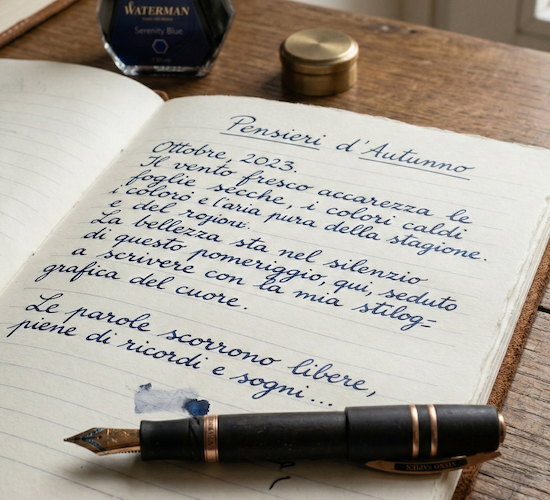 WATERMAN
Serenity Blue
Pensieri d'Autunno
Ottobre, 2023.
Il vento fresco accarezza le
foglie secche, i colori caldi
i coloro e l'aria pura della stagione.
e del regioni.
La bellezza sta nel silenzio
di questo pomeriggio, qui, seduto
a scrivere con la mia stilog-
grafica del cuore.
Le parole scorrono libere,
piene di ricordi e sogni...